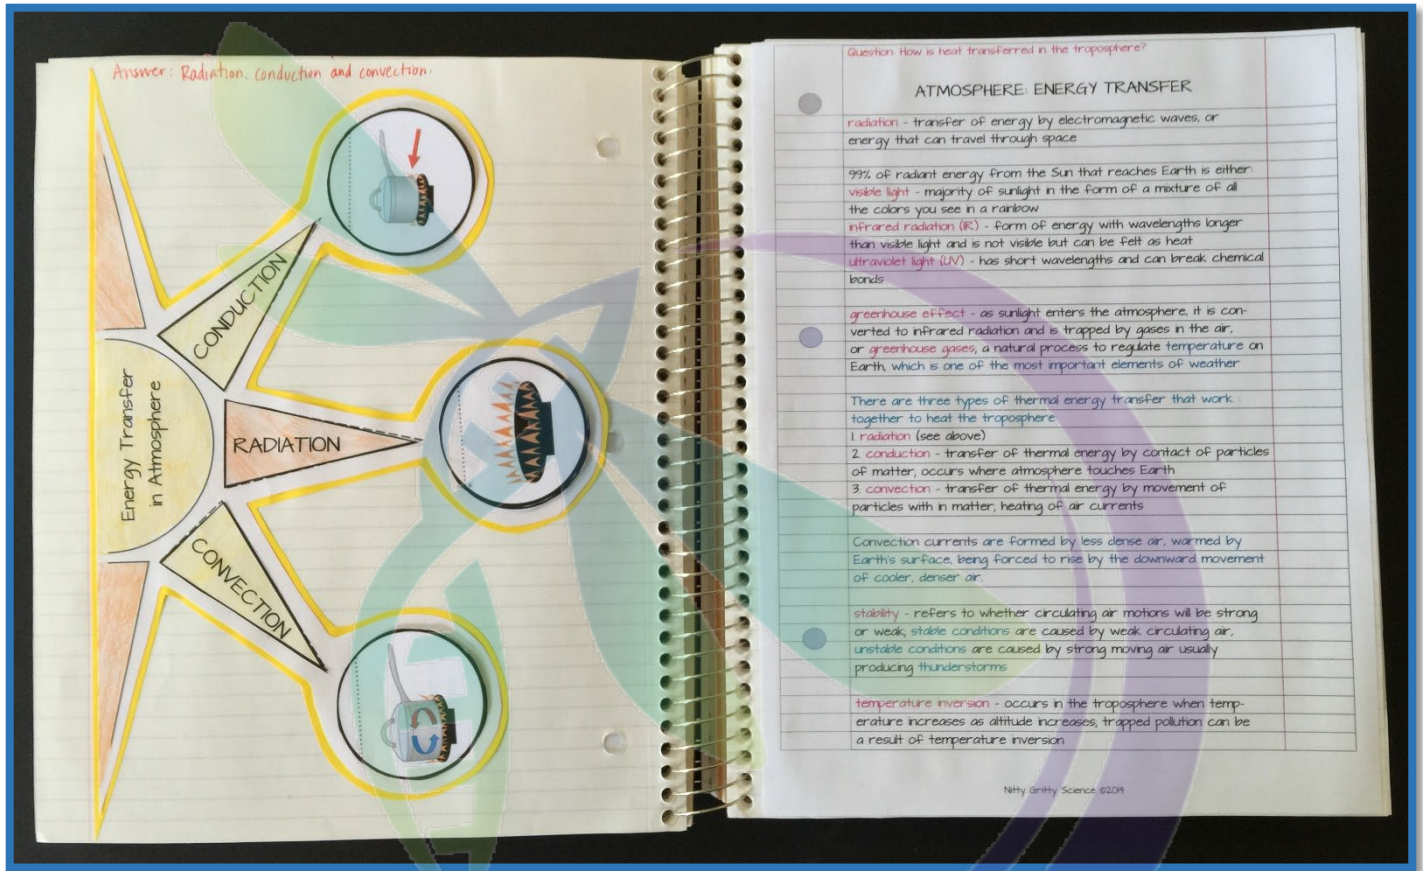 Answer: Radiation, conduction and convection.
CONDUCTION
RADIATION
CONVECTION
Energy Transfer
in Atmosphere
Question: How is heat transferred in the troposphere?
ATMOSPHERE: ENERGY TRANSFER
radiation - transfer of energy by electromagnetic waves, or
energy that can travel through space
99% of radiant energy from the Sun that reaches Earth is either:
visible light - majority of sunlight in the form of a mixture of all
the colors you see in a rainbow
infrared radiation (IR) - form of energy with wavelengths longer
than visible light and is not visible but can be felt as heat
ultraviolet light (UV) - has short wavelengths and can break chemical
bonds
greenhouse effect - as sunlight enters the atmosphere, it is con-
verted to infrared radiation and is trapped by gases in the air,
or greenhouse gases, a natural process to regulate temperature on
Earth, which is one of the most important elements of weather
There are three types of thermal energy transfer that work
together to heat the troposphere
1. radiation (see above)
2. conduction - transfer of thermal energy by contact of particles
of matter, occurs where atmosphere touches Earth
3. convection - transfer of thermal energy by movement of
particles with in matter, heating of air currents
Convection currents are formed by less dense air, warmed by
Earth's surface, being forced to rise by the downward movement
of cooler, denser air.
stability - refers to whether circulating air motions will be strong
or weak; stable conditions are caused by weak circulating air,
unstable conditions are caused by strong moving air usually
producing thunderstorms
temperature inversion - occurs in the troposphere when temp-
erature increases as altitude increases, trapped pollution can be
a result of temperature inversion
Nitty Gritty Science ©2014